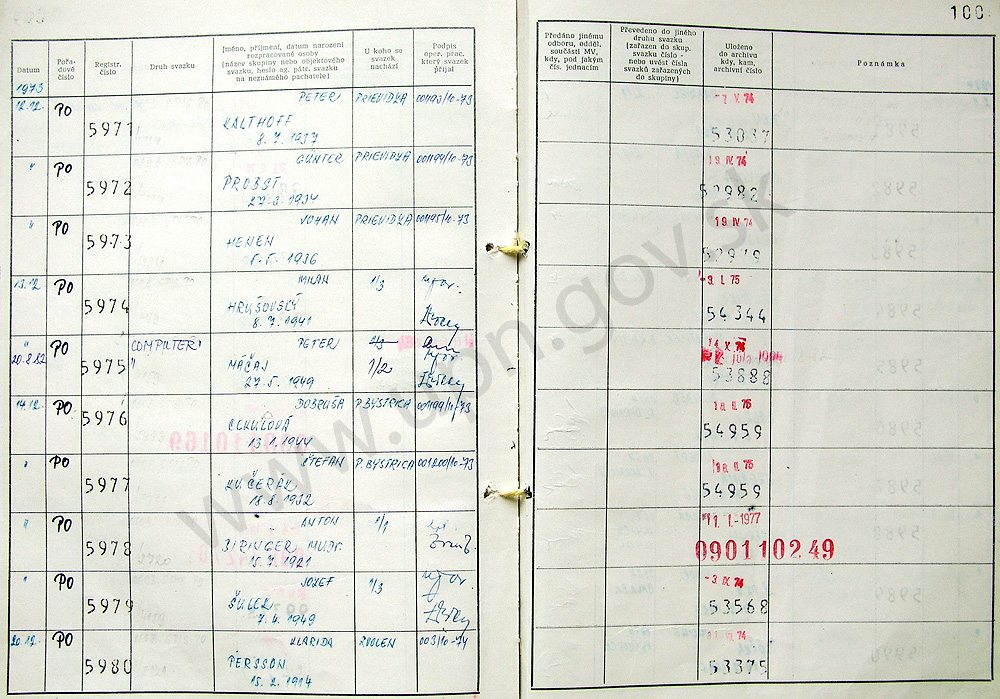 100
Datum
Pořa-
dové
číslo
Registr.
číslo
Druh svazku
Jméno, příjmení, datum narození
rozpracované osoby
(název skupiny nebo objektového
svazku, heslo ag. pátr. svazku
na neznámého pachatele)
U koho se
svazek
nachází
Podpis
oper. prac.
který svazek
přijal
Předáno jinému
odboru, odděl.
součásti MV,
kdy, pod jakým
čís. jednacím
Převedeno do jiného
druhu svazku
(zařazen do skup.
svazku číslo -
nebo uvést čísla
svazků zařazených
do skupiny)
Uloženo
do archivu
kdy, kam,
archivní číslo
Poznámka
1973
12.12. PO 5971 PETER PRIEVIDZA 001193/10-73
KALTHOFF
8. 7. 1937
" PO 5972 GÜNTER PRIEVIDZA 001194/10-73 19 IV. 74
PROBST
27. 3. 1934
" PO 5973 PRIEVIDZA 001195/10-73 19 IV 74
HENEN
13.12 PO 5974 MILAN 1/3 -3. I. 75
HRUŠOVSKÝ 54344
8. 7. 1941
" PO 5975 COMPUTER PETER 1/3
20.8.82 " MÁČAJ 1/2 53888
27. 5. 1949
14.12. PO 5976 DOBRUŠA P. BYSTRICA 001199/10-73
54959
" PO 5977 ŠTEFAN P. BYSTRICA 001200/10-73
KUČERÁK 54959
18. 8. 1932
" PO 5978 ANTON 1/1 11. I.-1977
BIRINGER MUDr. 090110249
15. 7. 1921
" PO 5979 JOZEF 1/3 -3. IX. 74
53568
7. 4. 1949
20.12. PO 5980 KLARIDA ZVOLEN 003/10-74
PERSSON 53375
15. 2. 1914
www.upn.gov.sk